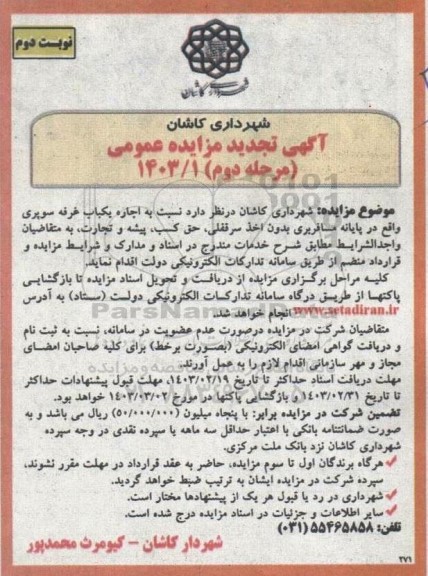 نوبت دوم
شهرداری کاشان
شهرداری کاشان
آگهی تجدید مزایده عمومی
(مرحله دوم) ۱۴۰۳/۱
موضوع مزایده: شهرداری کاشان درنظر دارد نسبت به اجاره یکباب غرفه سوپری
واقع در پایانه مسافربری بدون اخذ سرقفلی، حق کسب، پیشه و تجارت، به متقاضیان
واجدالشرایط مطابق شرح خدمات مندرج در اسناد و مدارک و شرایط مزایده و
قرارداد منضم از طریق سامانه تدارکات الکترونیکی دولت اقدام نماید.
کلیه مراحل برگزاری مزایده از دریافت و تحویل اسناد مزایده تا بازگشایی
پاکتها از طریق درگاه سامانه تدارکات الکترونیکی دولت (ستاد) به آدرس
www.setadiran.ir انجام خواهد شد.
متقاضیان شرکت در مزایده درصورت عدم عضویت در سامانه، نسبت به ثبت نام
و دریافت گواهی امضای الکترونیکی (بصورت برخط) برای کلیه صاحبان امضای
مجاز و مهر سازمانی اقدام لازم را به عمل آورند.
مهلت دریافت اسناد حداکثر تا تاریخ ۱۴۰۳/۰۲/۱۹، مهلت قبول پیشنهادات حداکثر
تا تاریخ ۱۴۰۳/۰۲/۳۱ و بازگشایی پاکتها در مورخ ۱۴۰۳/۰۳/۰۲ خواهد بود.
تضمین شرکت در مزایده برابر: با پنجاه میلیون (۵۰/۰۰۰/۰۰۰) ریال می باشد و به
صورت ضمانتنامه بانکی با اعتبار حداقل سه ماهه یا سپرده نقدی در وجه سپرده
شهرداری کاشان نزد بانک ملت مرکزی.
✓ هرگاه برندگان اول تا سوم مزایده، حاضر به عقد قرارداد در مهلت مقرر نشوند،
سپرده شرکت در مزایده ایشان به ترتیب ضبط خواهد گردید.
✓ شهرداری در رد یا قبول هر یک از پیشنهادها مختار است.
✓ سایر اطلاعات و جزئیات در اسناد مزایده درج شده است.
تلفن: ۵۵۴۶۵۸۵۸ (۰۳۱)
شهردار کاشان - کیومرث محمدپور
۲۷۱